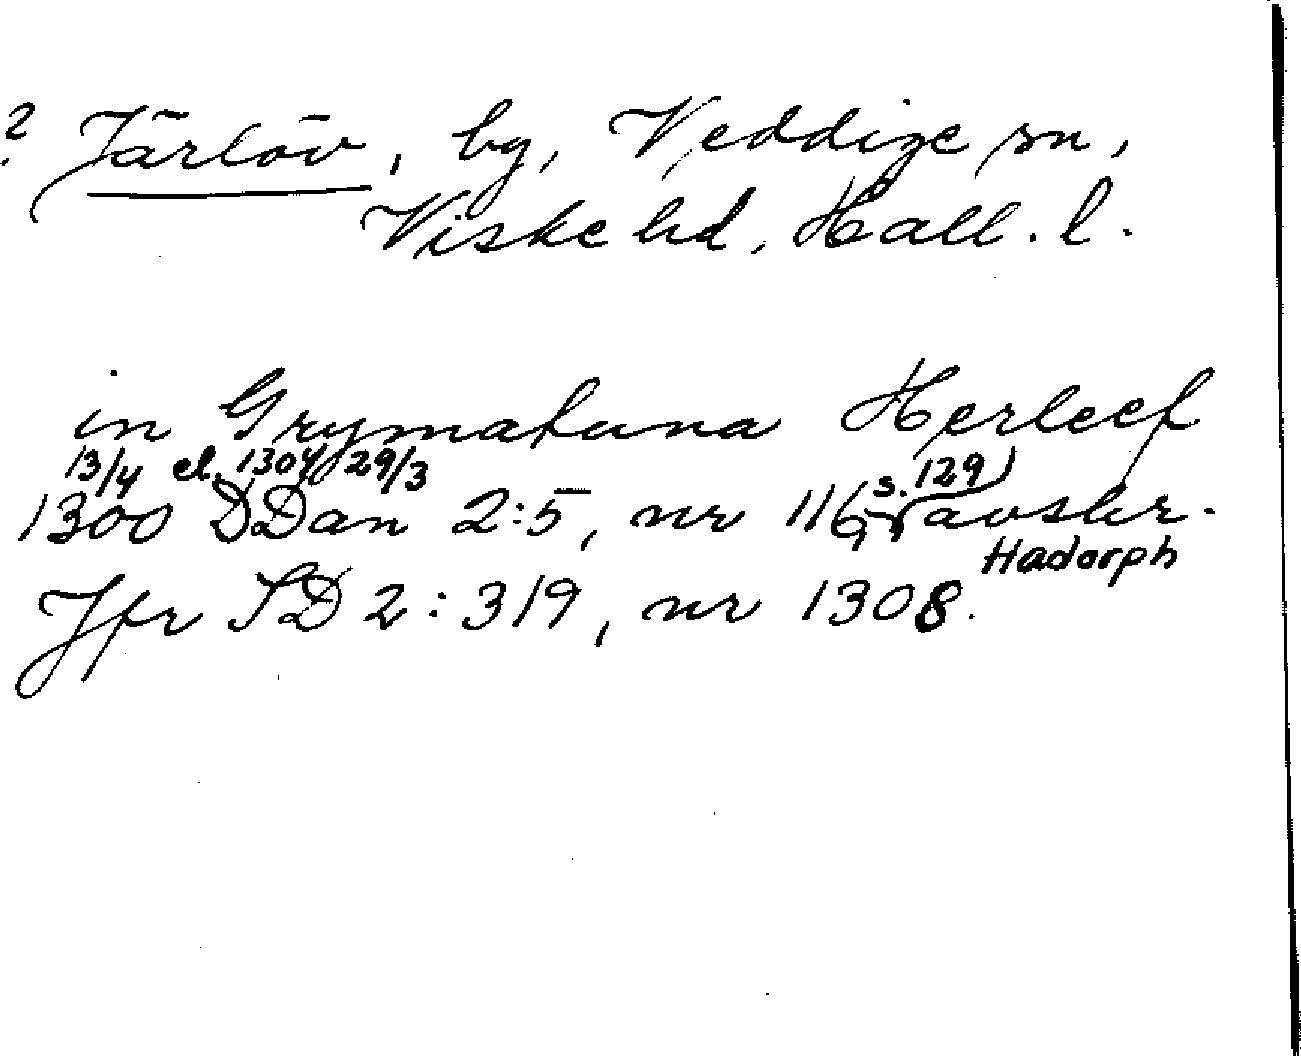 ? Järlöv, by, Veddige sn,
Viske hd, Hall. l.
in Grymatuna Herleef
13/4 el. 1304 29/3
1300 DDan 2:5, nr 116, s. 129) avskr.
Hadorph
Jfr SD 2:319, nr 1308.